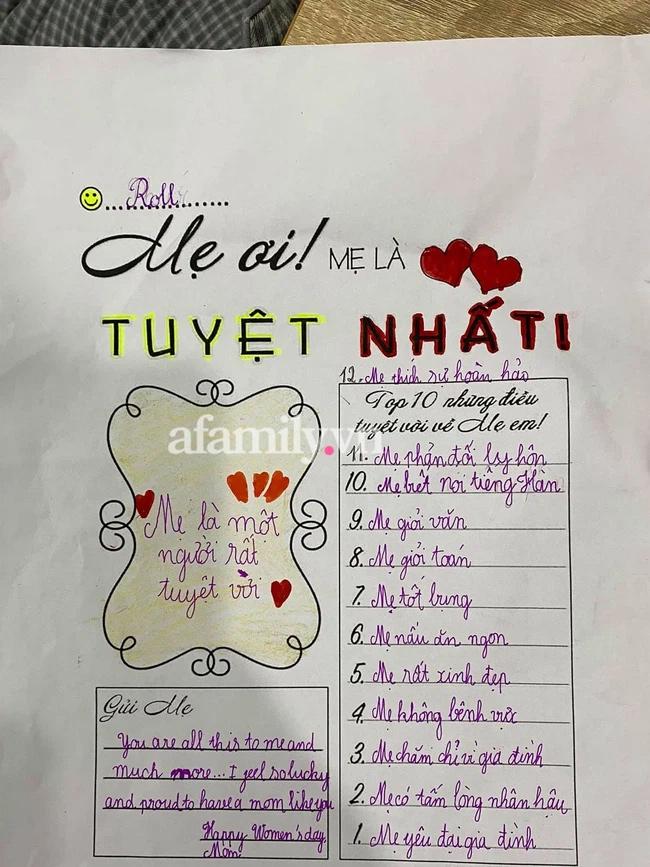 Roll
Mẹ ơi! MẸ LÀ
TUYỆT NHẤT!
12. Mẹ thích sự hoàn hảo
Top 10 những điều
tuyệt vời về Mẹ em!
11. Mẹ phản đối ly hôn
10. Mẹ biết nói tiếng Hàn
9. Mẹ giỏi văn
8. Mẹ giỏi toán
7. Mẹ tốt bụng
6. Mẹ nấu ăn ngon
5. Mẹ rất xinh đẹp
4. Mẹ không bênh vực
3. Mẹ chăm chỉ vì gia đình
2. Mẹ có tấm lòng nhân hậu
1. Mẹ yêu đại gia đình
afamily.vn
Mẹ là một
người rất
tuyệt vời
Gửi Mẹ
You are all this to me and
much more... I feel so lucky
and proud to have a mom like you
Happy Women's day,
Mom!